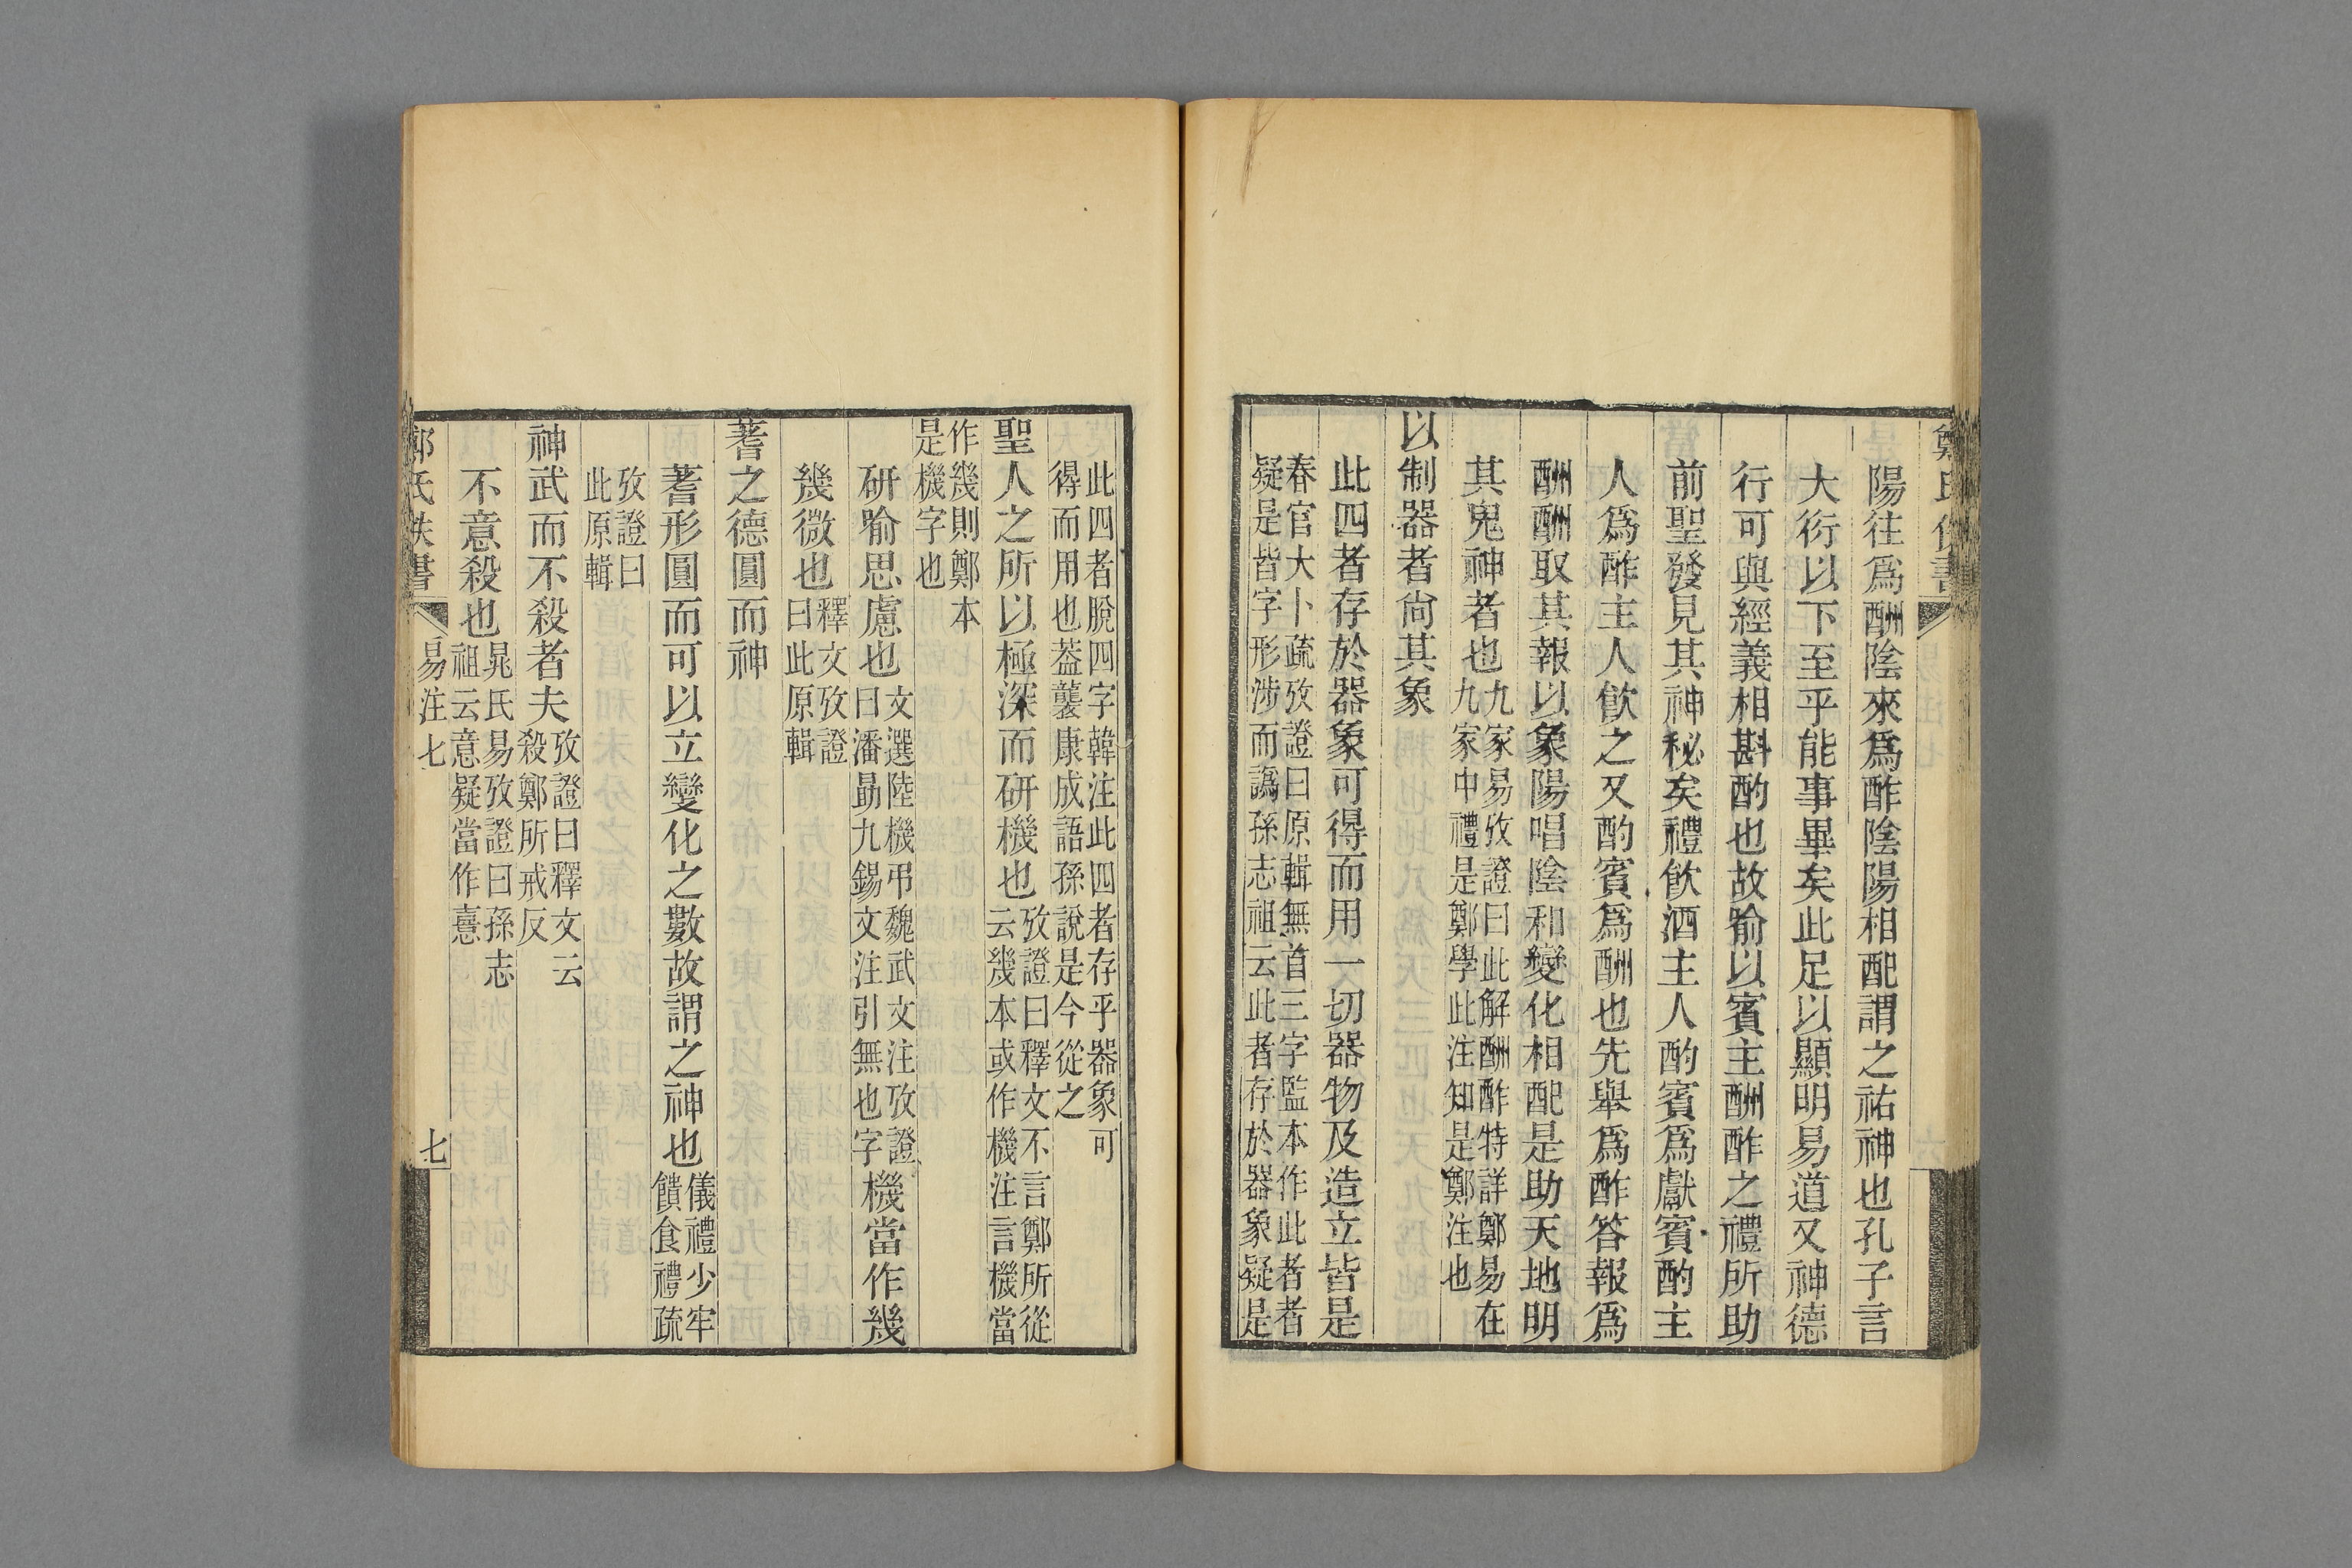 鄭氏佚書
陽往爲酬陰來爲酢陰陽相配謂之祐神也孔子言
大衍以下至乎能事畢矣此足以顯明易道又神德
行可與經義相斟酌也故喻以賓主酬酢之禮所助
前聖發見其神秘矣禮飲酒主人酌賓爲獻賓酌主
人爲酢主人飲之又酌賓爲酬也先舉爲酢答報爲
酬酬取其報以象陽唱陰和變化相配是助天地明
其鬼神者也九家易攷證曰此解酬酢特詳鄭易在
九家中禮是鄭學此注知是鄭注也
以制器者尙其象
此四者存於器象可得而用一切器物及造立皆是
春官大卜疏攷證曰原輯無首三字監本作此者者
疑是皆字形涉而譌孫志祖云此者存於器象疑是
此四者脫四字韓注此四者存乎器象可
得而用也葢襲康成語孫說是今從之
聖人之所以極深而研機也攷證曰釋文不言鄭所從
云幾本或作機注言機當
作幾則鄭本
是機字也
研喻思慮也文選陸機弔魏武文注攷證
曰潘勗九錫文注引無也字機當作幾
幾微也釋文攷證
曰此原輯
蓍之德圓而神
蓍形圓而可以立變化之數故謂之神也儀禮少牢
饋食禮疏
攷證曰
此原輯
神武而不殺者夫攷證曰釋文云
殺鄭所戒反
不意殺也晁氏易攷證曰孫志
祖云意疑當作憙
鄭氏佚書
易注七
七